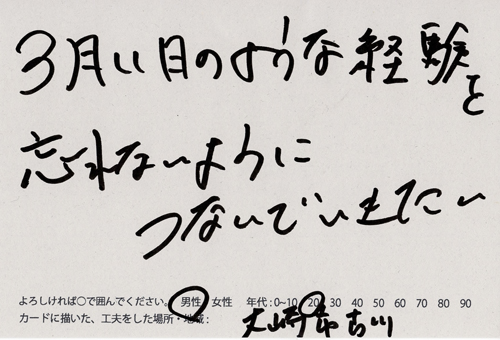 3月11日のような経験を
忘れないように
つないでいきたい
よろしければ○で囲んでください。 男性 女性 年代:0~10 20 30 40 50 60 70 80 90
カードに描いた、工夫をした場所・地域:
大崎市古川